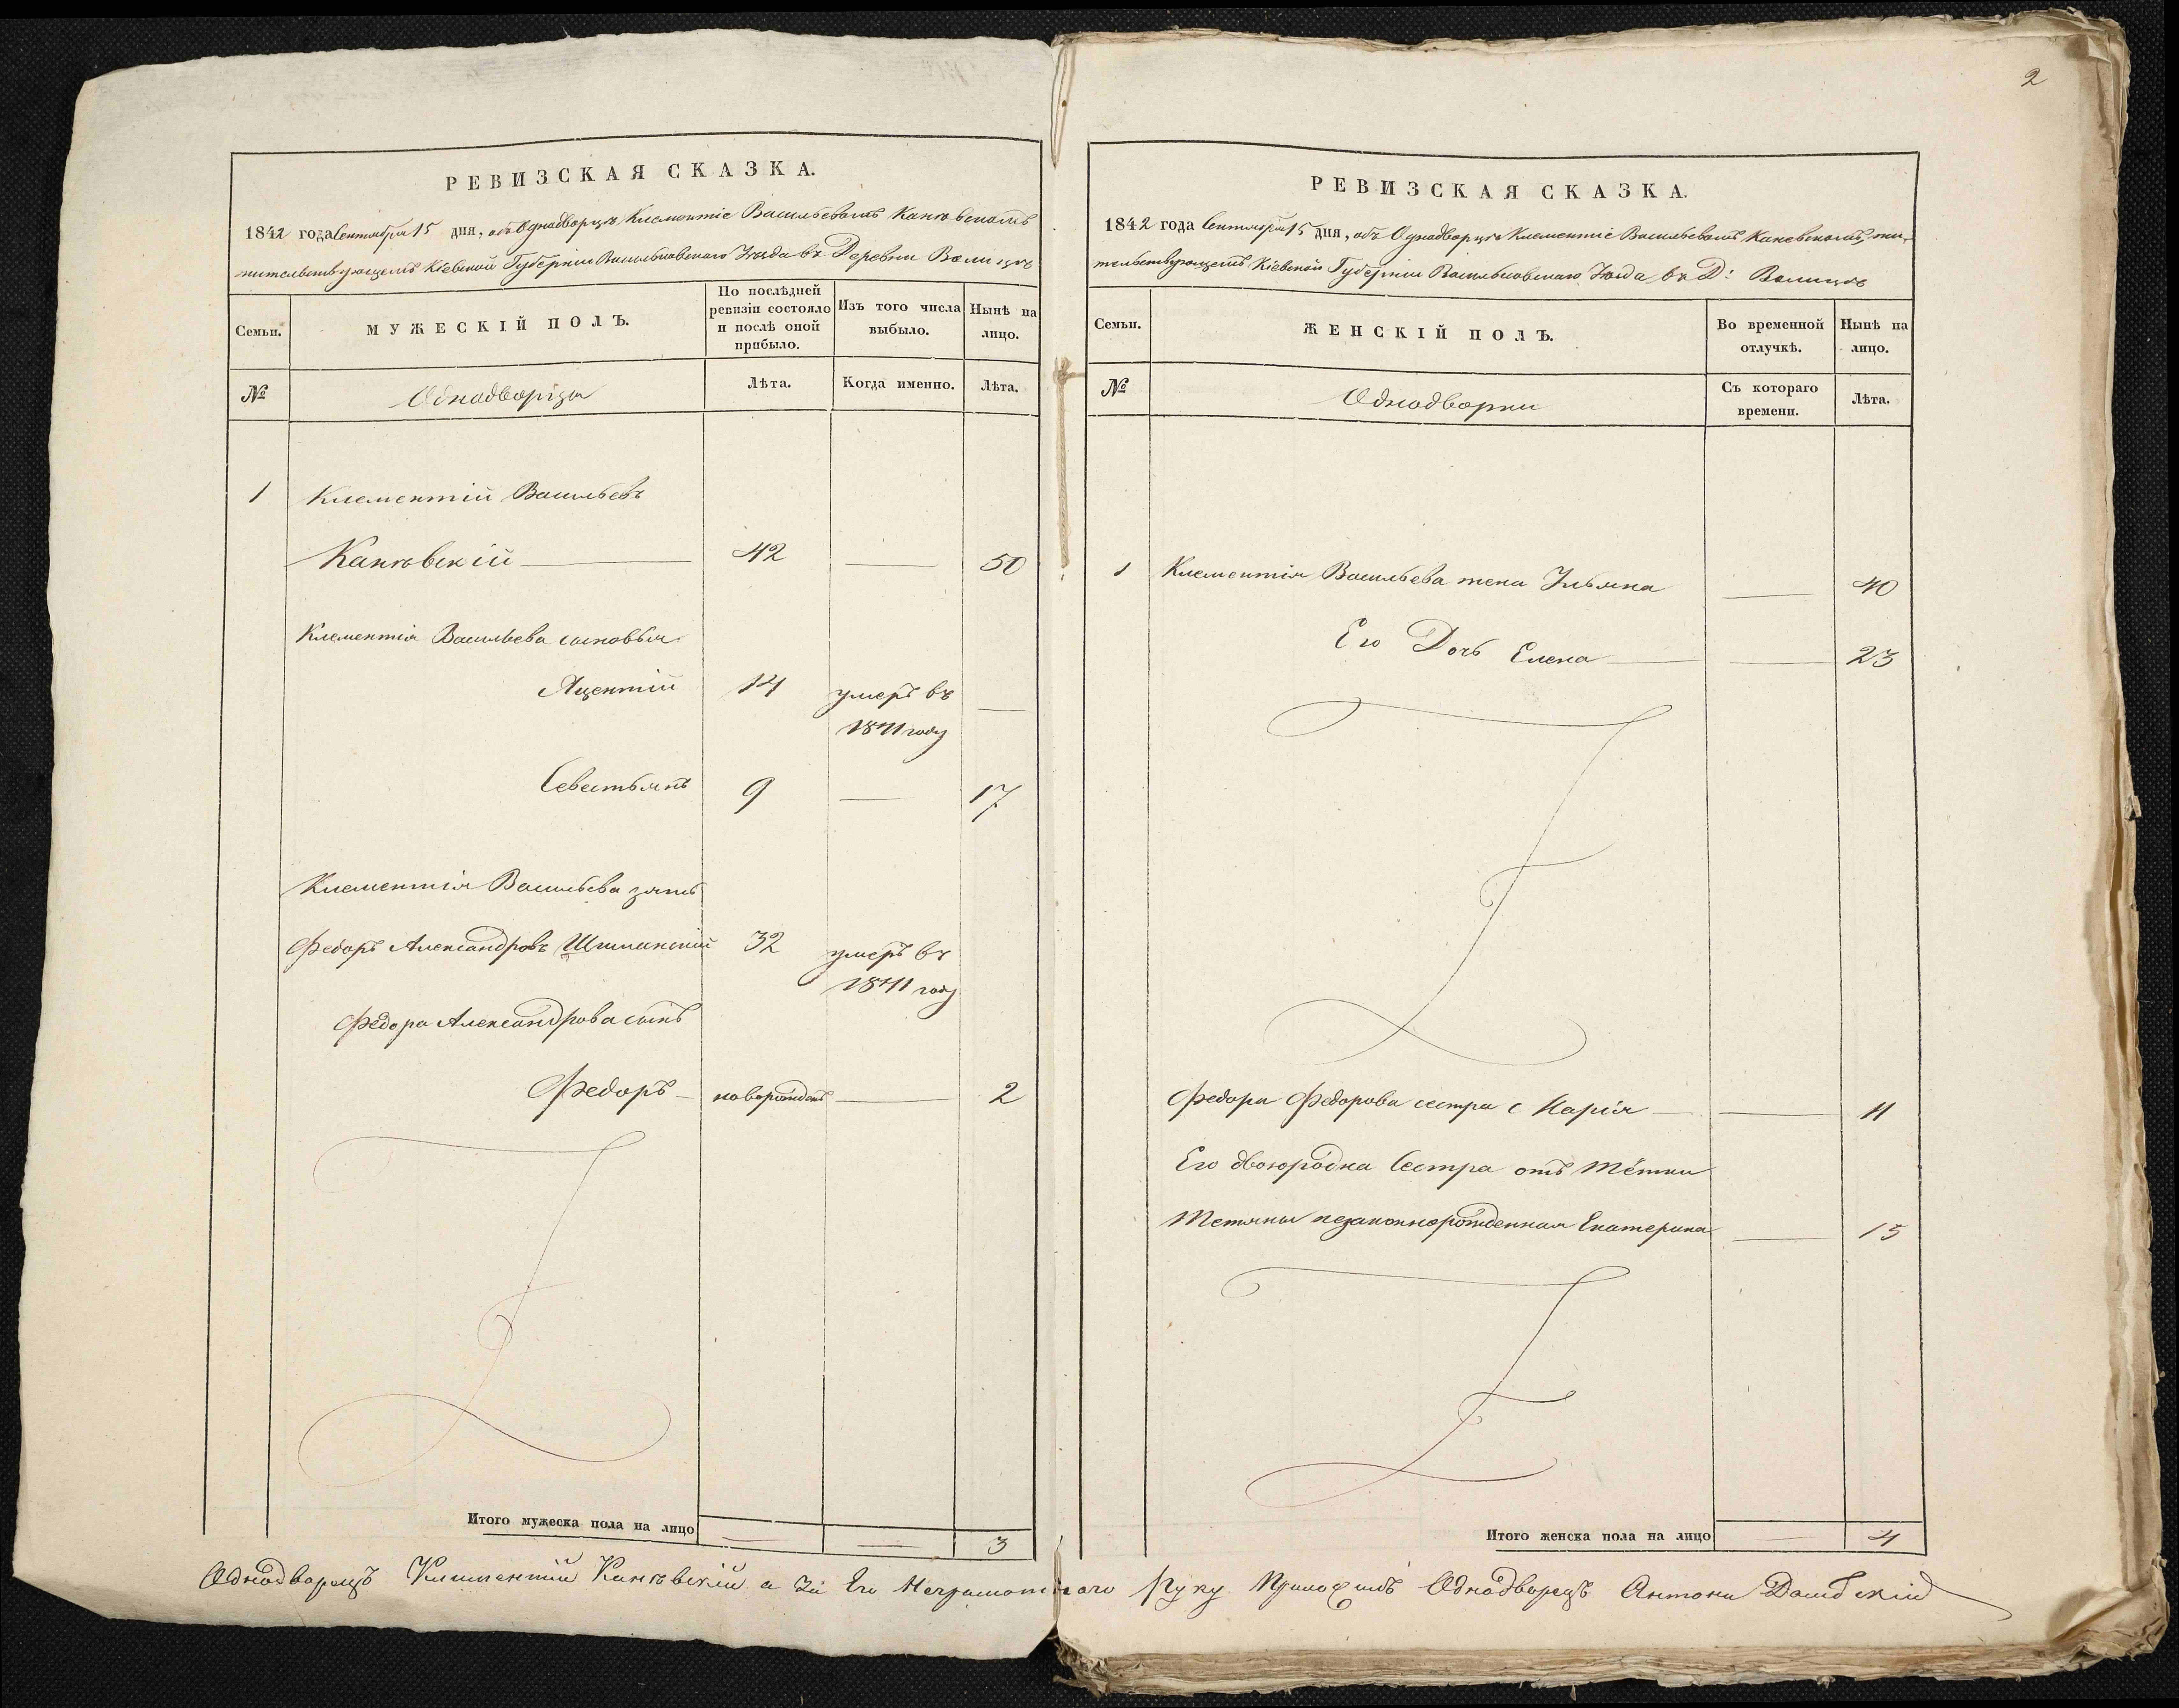 2
РЕВИЗСКАЯ СКАЗКА.
1842 года Сентября 15 дня, объ Однодворцѣ Клементіе Васильевомъ Канѣвскомъ
жительствующемъ Кіевской Губерніи Васильковскаго Уѣзда въ Деревни Волицѣ
Семьи.
МУЖЕСКІЙ ПОЛЪ.
По послѣдней
ревизіи состояло
и послѣ оной
прибыло.
Изъ того числа
выбыло.
Нынѣ на
лицо.
№
Однодворцы
Лѣта.
Когда именно.
Лѣта.
1 Клементій Васильевъ
Канѣвскій 42 — 50
Клементія Васильева сыновья
Яцентій 14 умеръ въ —
1841 году
Севестьянъ 9 — 17
Клементія Васильева зять
Федоръ Александровъ Шиманскій 32 умеръ въ
1841 году
Федора Александрова сынъ
Федоръ — новорожденъ — 2
Итого мужеска пола на лицо — — 3
РЕВИЗСКАЯ СКАЗКА.
1842 года Сентября 15 дня, объ Однодворцѣ Клементіе Васильевомъ Каневскомъ, жи-
тельствующемъ Кіевской Губерніи Васильковскаго Уѣзда въ Д: Волицѣ
Семьи.
ЖЕНСКІЙ ПОЛЪ.
Во временной
отлучкѣ.
Нынѣ на
лицо.
№
Однодворки
Съ котораго
времени.
Лѣта.
1 Клементія Васильева жена Ульяна — 40
Его Дочь Елена — — 23
Федора Федорова сестра Марія — — 11
Его двоюродна Сестра отъ тётки
Тетяны незаконнорожденная Екатерина — 15
Итого женска пола на лицо — 4
Однодворецъ Климентий Канѣвскій а за Его Неграмотнаго Руку Приложилъ Однодворецъ Антони